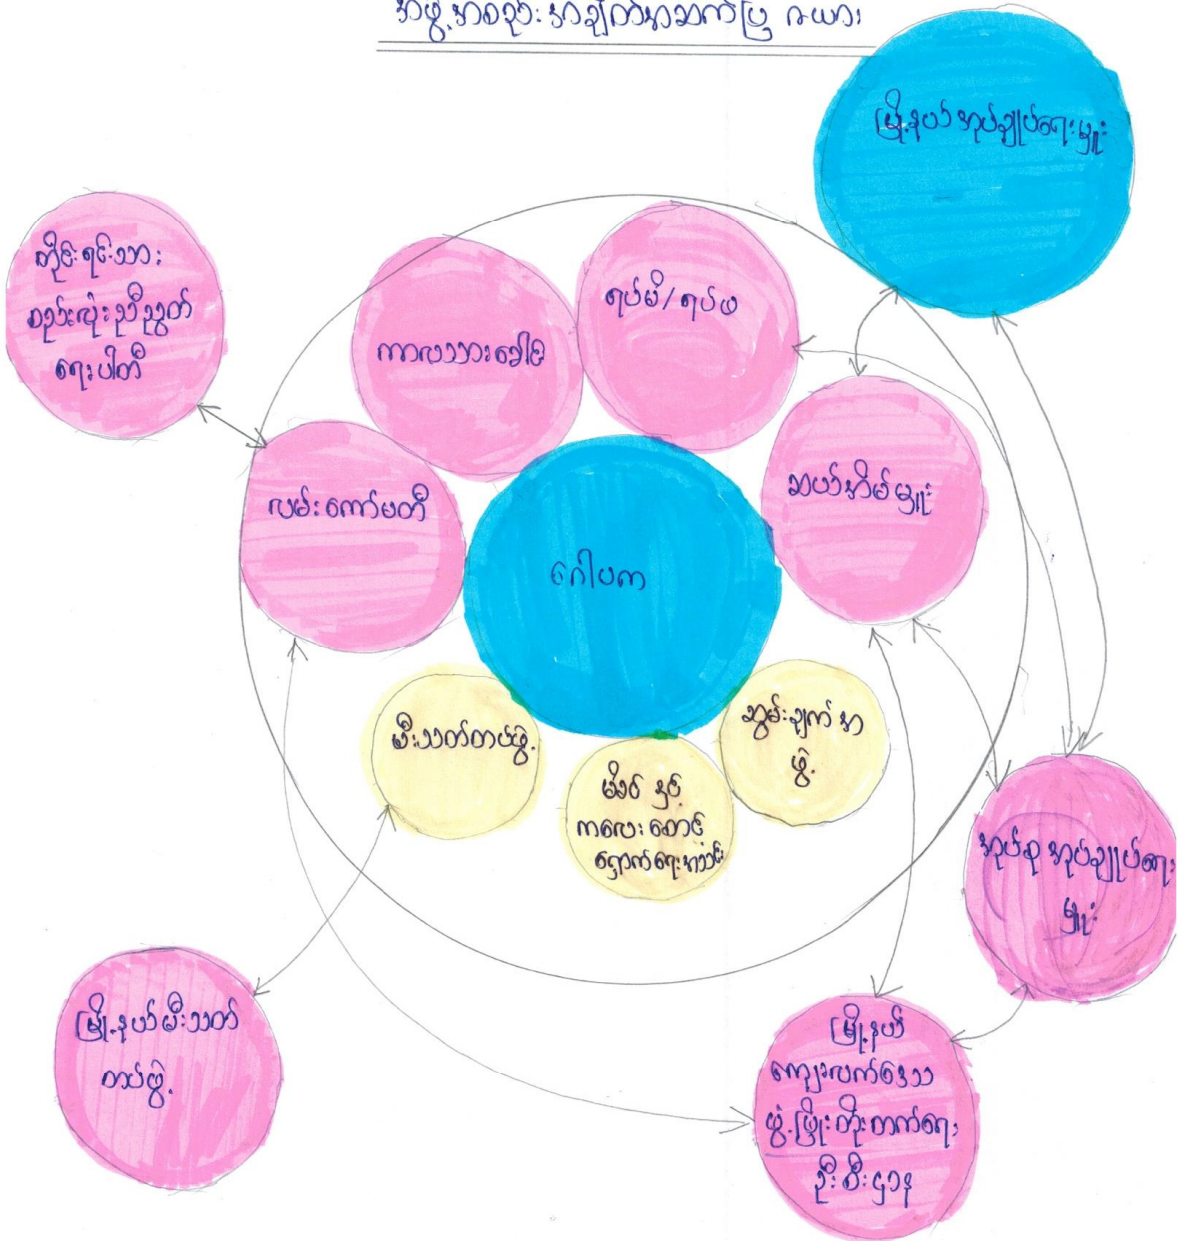 အဖွဲ့အစည်းအချိတ်အဆက်ပြ ဇယား
မြို့နယ်အုပ်ချုပ်ရေးမှူး
တိုင်းရင်းသား
စည်းလုံးညီညွတ်
ရေးပါတီ
ကာလသားခေါင်း
ရပ်မိ/ရပ်ဖ
လမ်းကော်မတီ
ဆယ်အိမ်မှူး
ဂေါပက
မီးသတ်တပ်ဖွဲ့
မိခင် နှင့်
ကလေး စောင့်
ရှောက်ရေးအသင်း
ဆွမ်းချက်အ
ဖွဲ့
အုပ်စု အုပ်ချုပ်ရေး
မှူး
မြို့နယ်မီးသတ်
တပ်ဖွဲ့
မြို့နယ်
ကျေးလက်ဒေသ
ဖွံ့ဖြိုးတိုးတက်ရေး
ဦးစီးဌာန